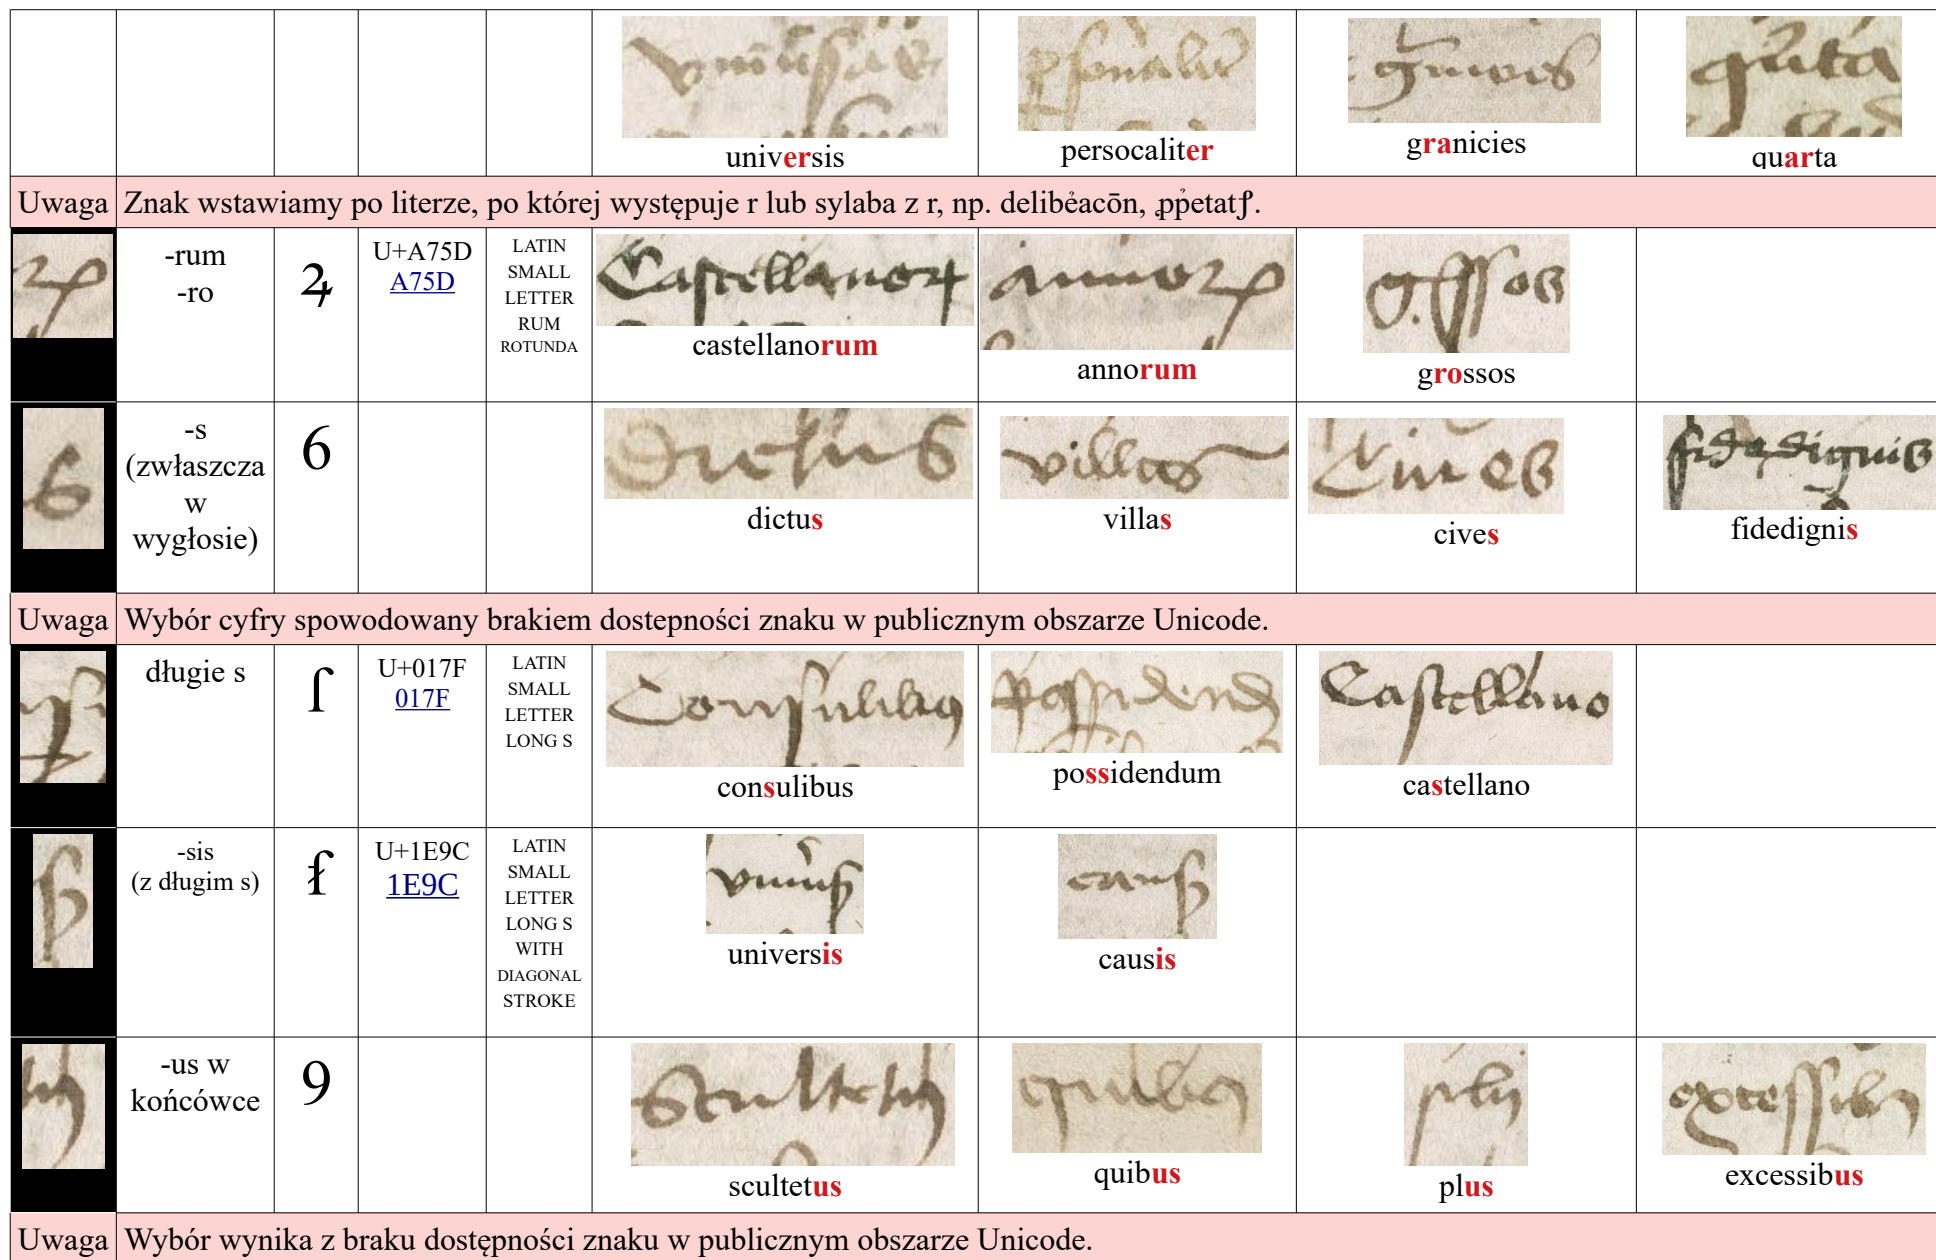 universis
persocaliter
granicies
quarta
Uwaga Znak wstawiamy po literze, po której występuje r lub sylaba z r, np. delibe̓acōn, ꝓp̓petatꝭ.
-rum
-ro
ꝝ
U+A75D
A75D
LATIN
SMALL
LETTER
RUM
ROTUNDA
castellanorum
annorum
grossos
-s
(zwłaszcza
w
wygłosie)
6
dictus
villas
cives
fidedignis
Uwaga Wybór cyfry spowodowany brakiem dostepności znaku w publicznym obszarze Unicode.
długie s
ſ
U+017F
017F
LATIN
SMALL
LETTER
LONG S
consulibus
possidendum
castellano
-sis
(z długim s)
ẜ
U+1E9C
1E9C
LATIN
SMALL
LETTER
LONG S
WITH
DIAGONAL
STROKE
universis
causis
-us w
końcówce
9
scultetus
quibus
plus
excessibus
Uwaga Wybór wynika z braku dostępności znaku w publicznym obszarze Unicode.